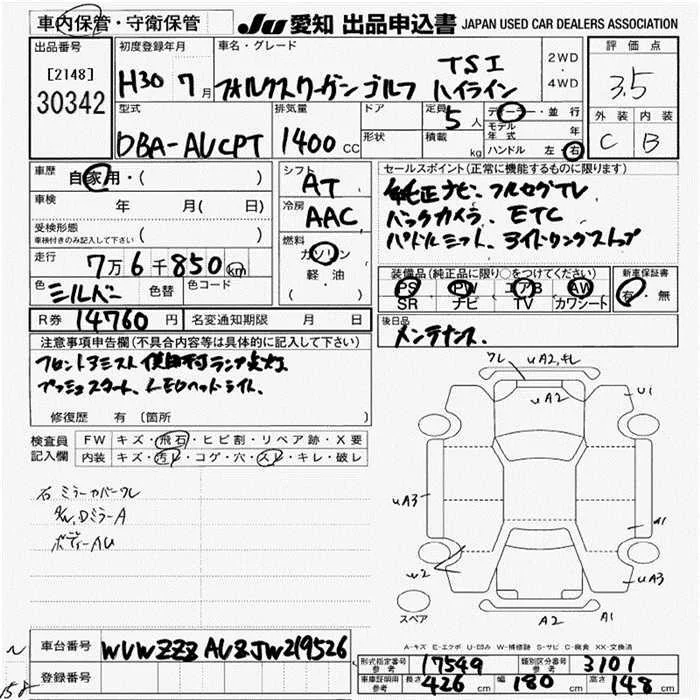 車内保管・守衛保管
JU 愛知 出品申込書 JAPAN USED CAR DEALERS ASSOCIATION
出品番号 初度登録年月 車名・グレード 評価点
[2148]
30342
H30 7月 フォルクスワーゲン ゴルフ TSI ハイライン
2WD
・
4WD
3.5
型式 排気量 ドア 定員 5人 ディーラー・並行 外装 内装
DBA-AUCPT 1400 CC 形状 積載 kg モデル年式 年 C B
ハンドル 左 右
車歴 自家用・( )
シフト AT
セールスポイント(正常に機能するものに限ります)
車検 年 月( 日)
冷房 AAC
純正ナビ、フルセグTV
バックカメラ、ETC
受検形態
車検付きのみ記入して下さい ( )
燃料 ガソリン
軽・油
( )
走行 7万6千850km
色 シルバー 色替 色コード
装備品(純正品に限り○をつけてください) 新車保証書
PS PW エアB AW 有・無
SR ナビ TV カワシート
R券 14760円 名変通知期限 月 日
後日品 メンテナンス、
注意事項申告欄(不具合内容等は具体的に記入して下さい)
プッシュスタート、LEDヘッドライト、
修復歴 有 〔箇所 〕
検査員 FW キズ・飛石・ヒビ割・リペア跡・X要
記入欄 内装 キズ・汚レ・コゲ・穴・スレ・キレ・破レ
右ミラーカバーワレ
A/W、DミラーA
ボディーAU
ワレ uA2,キレ
uA2
U1
uA3
A1
w2
uA3
A2 A1
スペア
A-キズ E-エクボ U-凹み W-補修跡 S-サビ C-腐食 XX-交換済
車台番号 WVWZZZAUZJW219526
登録番号
型式指定番号 参考 17549 類別区分番号 参考 3101
車庫証明用 参考 長さ 426 cm 幅 180 cm 高さ 148 cm
158